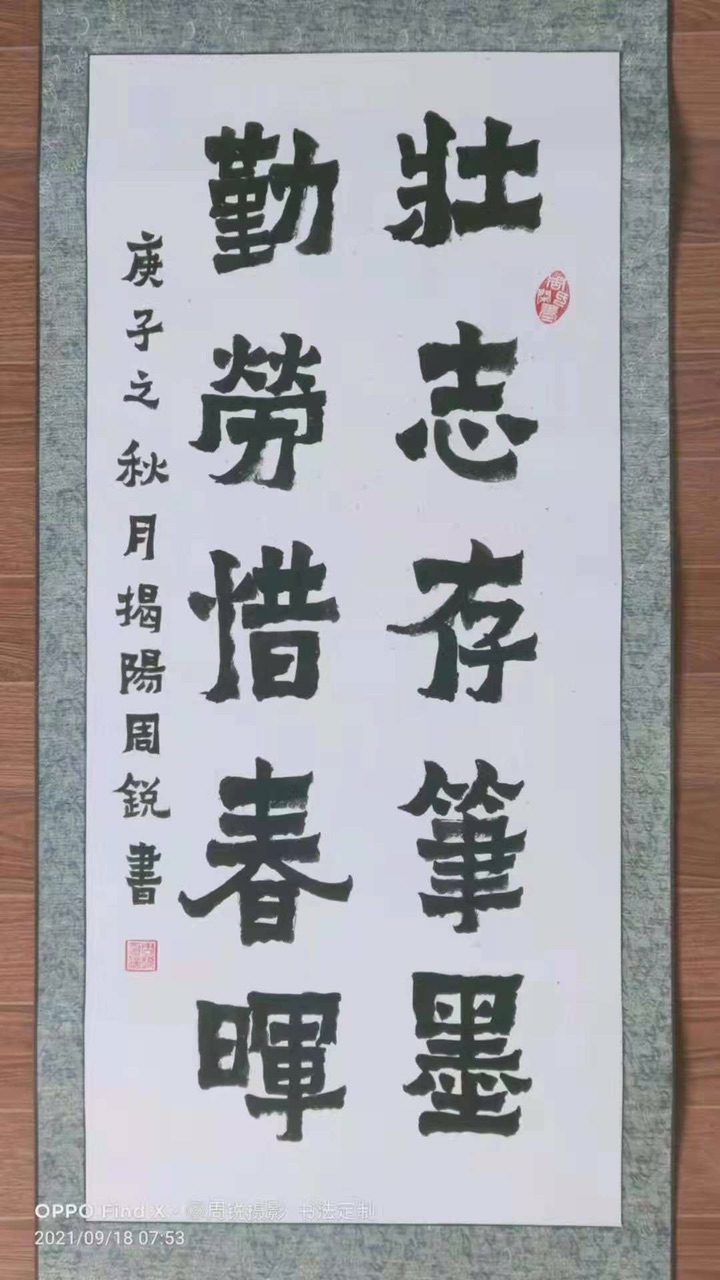 壯志存筆墨
勤勞惜春暉
庚子之秋月揭陽周銳書
OPPO Find X · ©周銳攝影 书法定制
2021/09/18 07:53